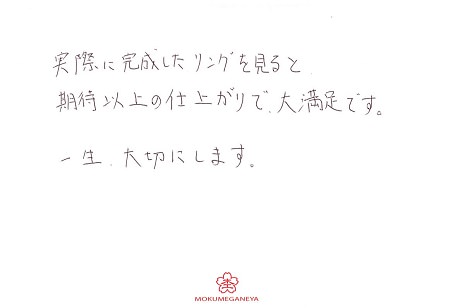 実際に完成したリングを見ると、
期待以上の仕上がりで、大満足です。
一生、大切にします。
MOKUMEGANEYA